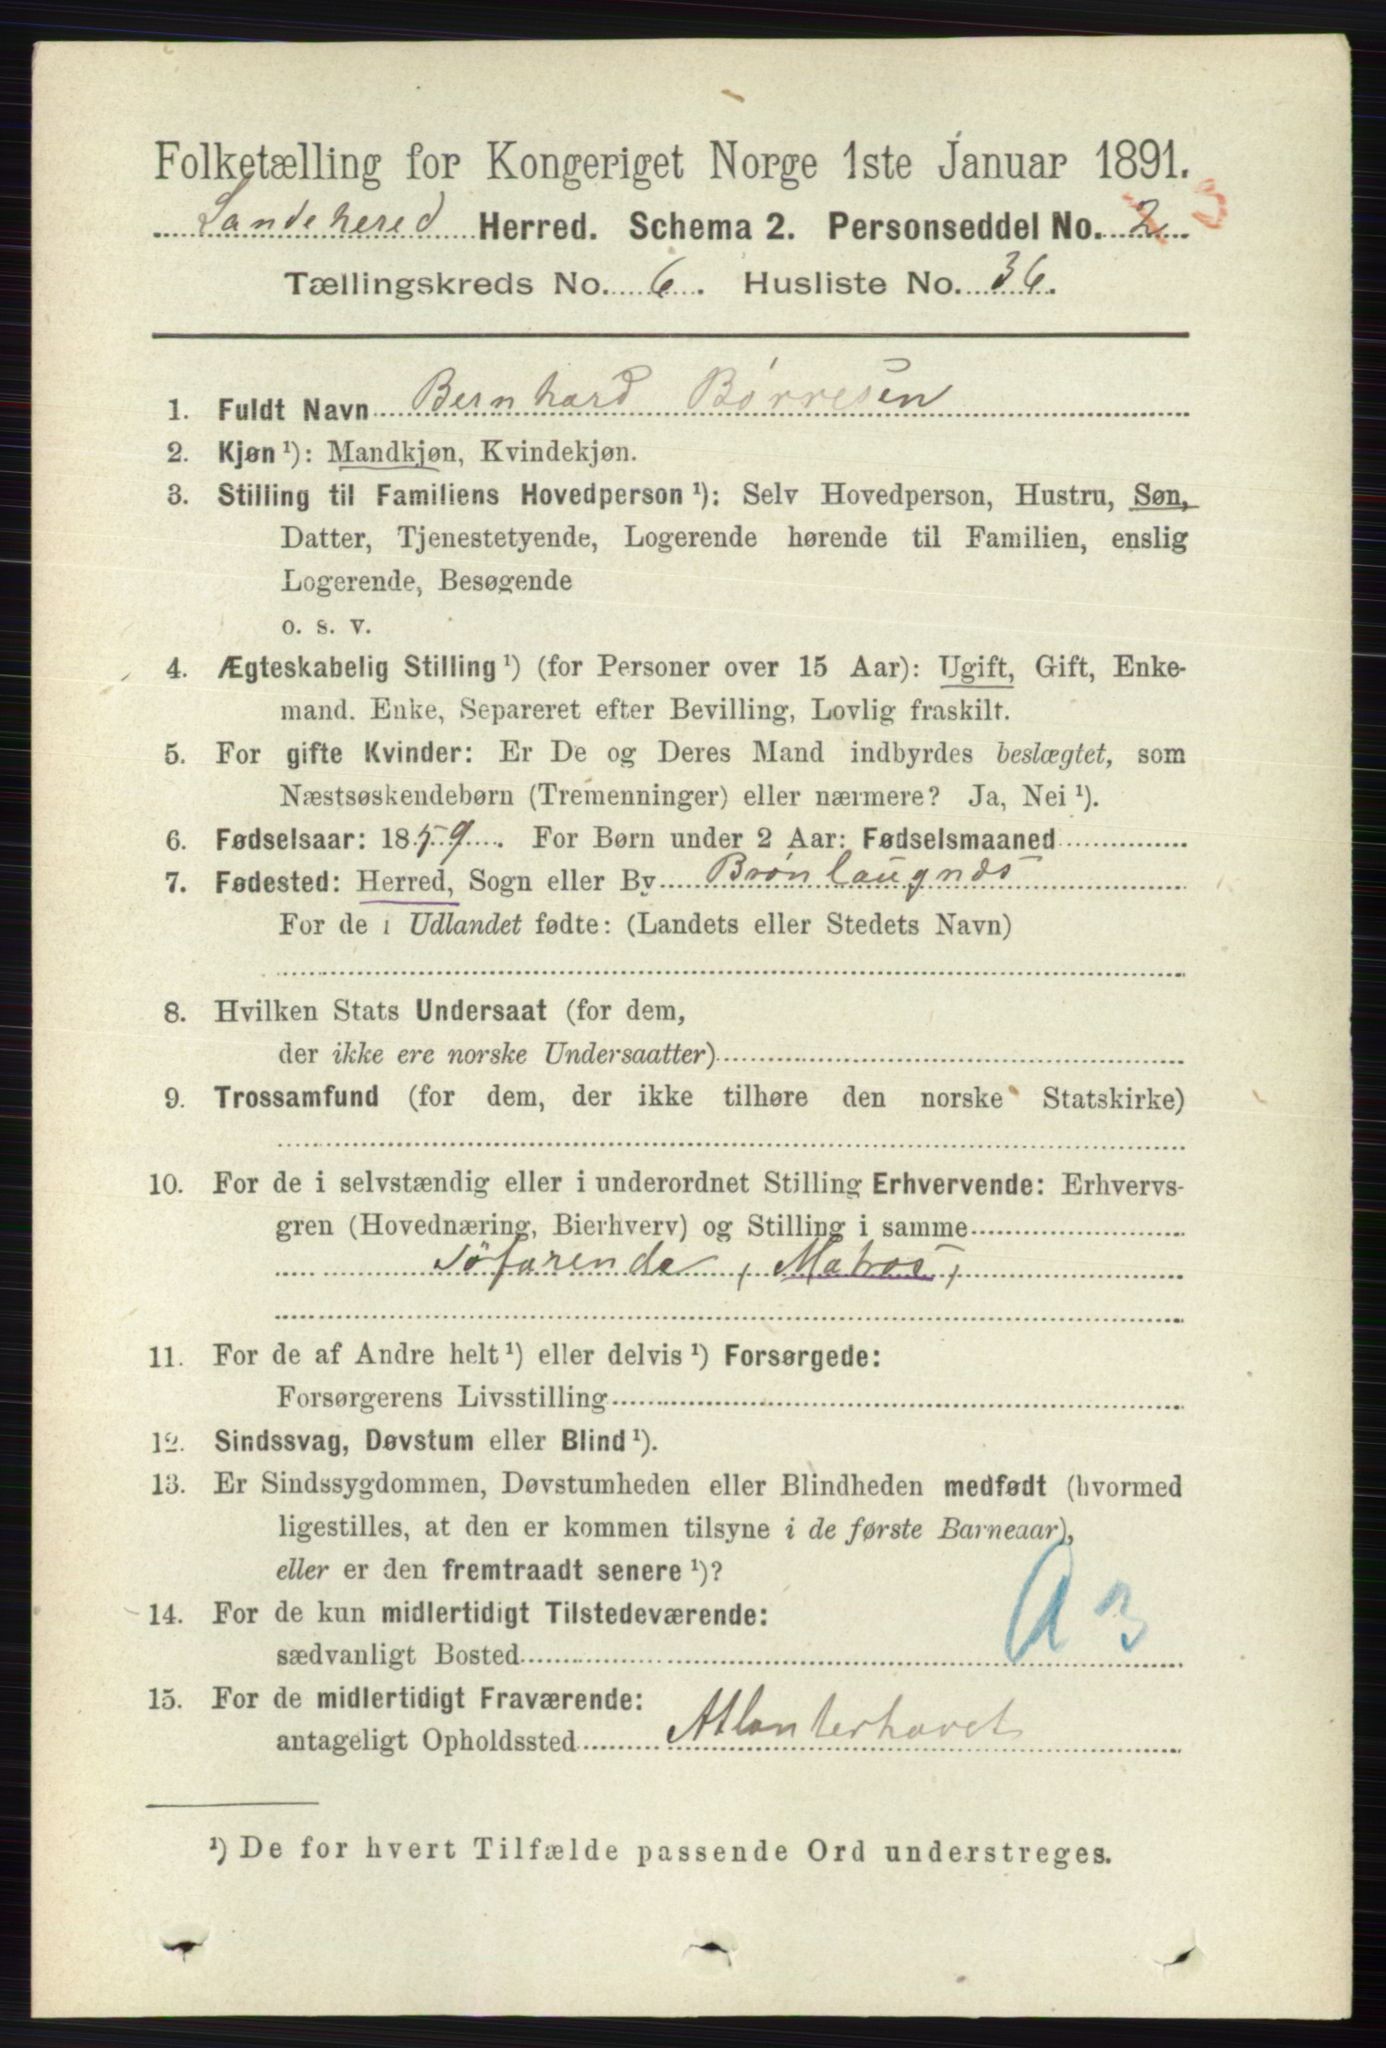 Folketælling for Kongeriget Norge 1ste Januar 1891.
Sandehered Herred. Schema 2. Personseddel No. 2 3
Tællingskreds No. 6. Husliste No. 36.
1. Fuldt Navn Bernhard Børresen
2. Kjøn ¹): Mandkjøn, Kvindekjøn.
3. Stilling til Familiens Hovedperson ¹): Selv Hovedperson, Hustru, Søn,
Datter, Tjenestetyende, Logerende hørende til Familien, enslig
Logerende, Besøgende
o. s. v.
4. Ægteskabelig Stilling ¹) (for Personer over 15 Aar): Ugift, Gift, Enke-
mand. Enke, Separeret efter Bevilling, Lovlig fraskilt.
5. For gifte Kvinder: Er De og Deres Mand indbyrdes beslægtet, som
Næstsøskendebørn (Tremenninger) eller nærmere? Ja, Nei ¹).
6. Fødselsaar: 1859. For Børn under 2 Aar: Fødselsmaaned
7. Fødested: Herred, Sogn eller By Brønlaugnds
For de i Udlandet fødte: (Landets eller Stedets Navn)
8. Hvilken Stats Undersaat (for dem,
der ikke ere norske Undersaatter)
9. Trossamfund (for dem, der ikke tilhøre den norske Statskirke)
10. For de i selvstændig eller i underordnet Stilling Erhvervende: Erhvervs-
gren (Hovednæring, Bierhverv) og Stilling i samme
Söfarende, Matros,
11. For de af Andre helt ¹) eller delvis ¹) Forsørgede:
Forsørgerens Livsstilling
12. Sindssvag, Døvstum eller Blind ¹).
13. Er Sindssygdommen, Døvstumheden eller Blindheden medfødt (hvormed
ligestilles, at den er kommen tilsyne i de første Barneaar),
eller er den fremtraadt senere ¹)?
14. For de kun midlertidigt Tilstedeværende:
sædvanligt Bosted a 3
15. For de midlertidigt Fraværende:
antageligt Opholdssted Atlanterhavet
¹) De for hvert Tilfælde passende Ord understreges.